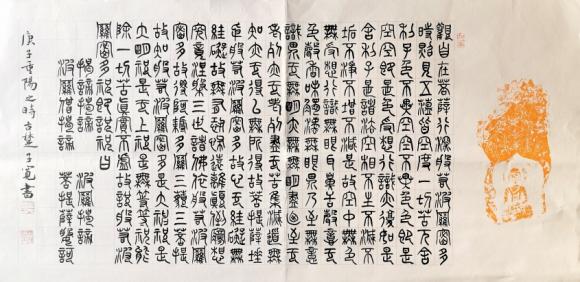 觀自在菩薩行深般若波羅蜜多
時照見五蘊皆空度一切苦厄舍
利子色不異空空不異色色即是
空空即是色受想行識亦復如是
舍利子是諸法空相不生不滅不
垢不淨不增不減是故空中無色
無受想行識無眼耳鼻舌身意無
色聲香味觸法無眼界乃至無意
識界無無明亦無無明盡乃至無
老死亦無老死盡無苦集滅道無
智亦無得以無所得故菩提薩埵
依般若波羅蜜多故心無罣礙無
罣礙故無有恐怖遠離顛倒夢想
究竟涅槃三世諸佛依般若波羅
蜜多故得阿耨多羅三藐三菩提
故知般若波羅蜜多是大神咒是
大明咒是無上咒是無等等咒能
除一切苦真實不虛故說般若波
羅蜜多咒即說咒曰
揭諦揭諦 波羅揭諦
波羅僧揭諦 菩提薩婆訶
庚子重陽之時古楚子寬書